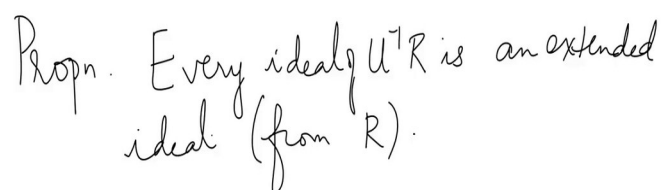 Propn. Every ideal of U⁻¹R is an extended
ideal (from R).